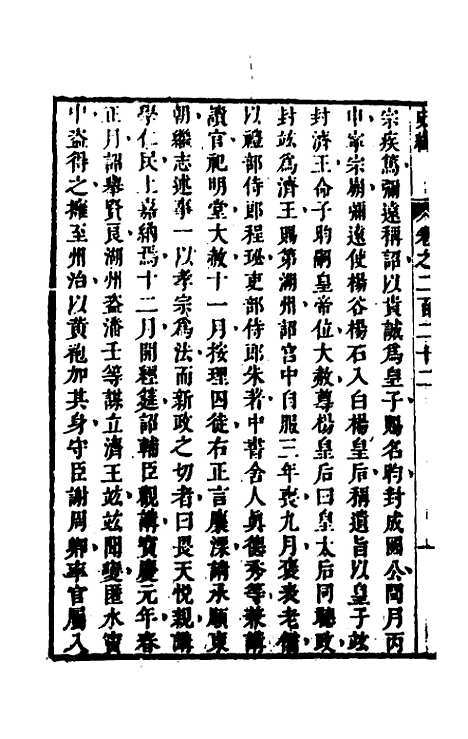 宗疾篤彌遠稱詔以貴誠爲皇子賜名昀封成國公閏月丙
申寧宗崩彌遠使楊谷楊石入白楊皇后稱遺旨以皇子竑
封濟王命子昀嗣皇帝位大赦尊楊皇后曰皇太后同聽政
封竑爲濟王賜第湖州詔宫中自服三年喪九月褒表老儒
以禮部侍郎程珌吏部侍郎朱著中書舍人眞德秀等兼講
讀官祀明堂大赦十一月按理囚徒右正言麋溧請承順東
朝繼志述事一以孝宗爲法而新政之切者曰畏天悅親講
學仁民上嘉納焉十二月開經筵詔輔臣觀講寶慶元年春
正月詔舉賢良湖州盜潘壬等謀立濟王竑竑聞變匿水竇
中盜得之擁至州治以黄袍加其身守臣謝周卿率官屬入
卷之二百二十二